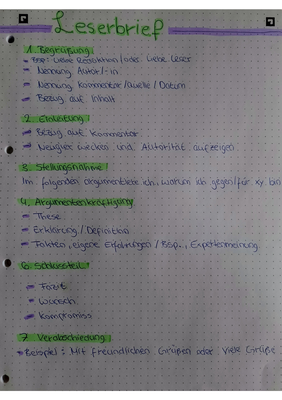 Leserbrief
1. Begrüßung:
• Bsp: Liebe Redaktion/oder Liebe Leser
- Nennung Autor/-in
- Nennung Kommentar/Quelle/Datum
- Bezug auf Inhalt
2. Einleitung:
- Bezug auf Kommentar
- Neugier wecken und Autorität aufzeigen
3. Stellungnahme:
Im folgenden argumentiere ich, warum ich gegen/für xy bin
4. Argumentenkräftigung
- These
- Erklärung/Definition
- Fakten, eigene Erfahrungen/Bsp., Expertenmeinung
6. Schlussteil:
- Fazit
- Wunsch
- Kompromiss
7. Verabschiedung:
• Beispiel: Mit freundlichen Grüßen oder Viele Grüße